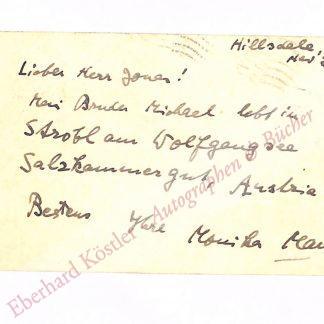 Hillsdale,
Lieber Herr Jonas!
Mein Bruder Michael lebt in
Strobl am Wolfgangsee
Salzkammergut, Austria
Bestens Ihre
Monika Man
Eberhard Köstler - Autographen & Bücher